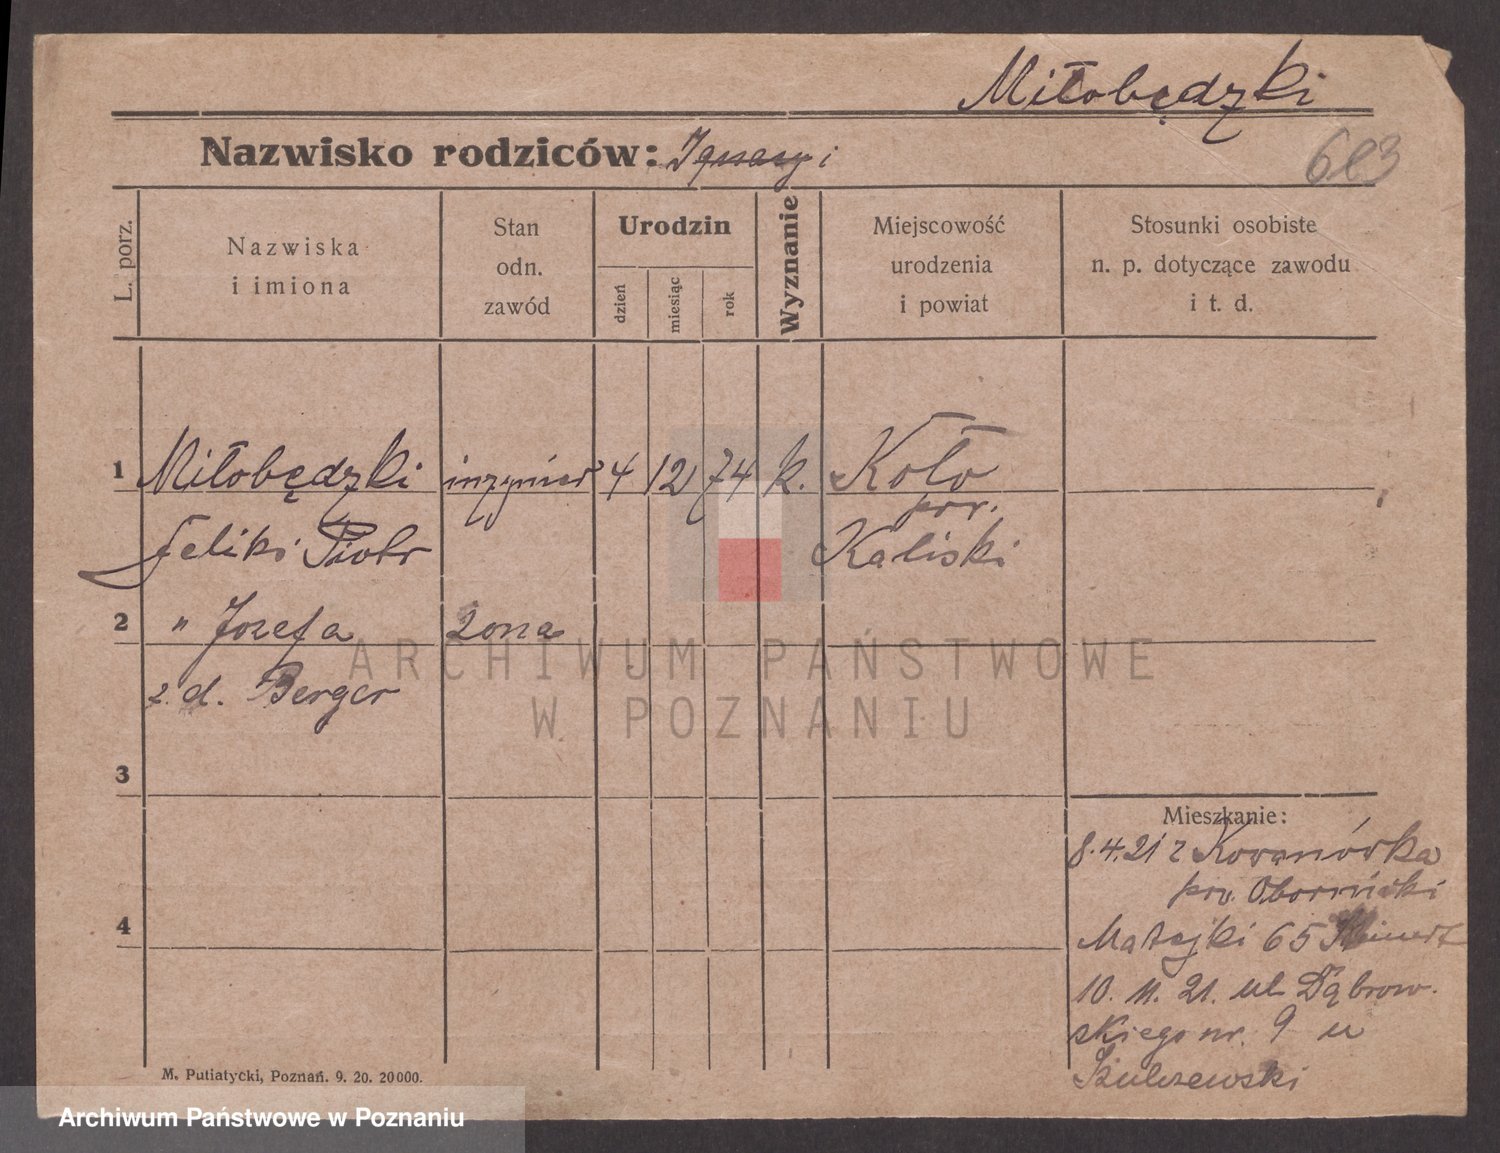 Miłobędzki
Nazwisko rodziców: Ignacy i
L. porz.
Nazwiska
i imiona
Stan
odn.
zawód
Urodzin
dzień
miesiąc
rok
Wyznanie
Miejscowość
urodzenia
i powiat
Stosunki osobiste
n. p. dotyczące zawodu
i t. d.
1 Miłobędzki inżynier 4 12 74 k. Koło
pow.
Feliks Piotr Kaliski
2 " Józefa żona
z d. Berger
3
4
Mieszkanie:
8.4.21 z Kowanówka
pow. Obornicki
Matejki 65
10. 11. 21. ul. Dąbrow-
skiego nr. 9 u
Szulczewski
M. Putiatycki, Poznań. 9. 20. 20000.
ARCHIWUM PAŃSTWOWE
W POZNANIU
Archiwum Państwowe w Poznaniu